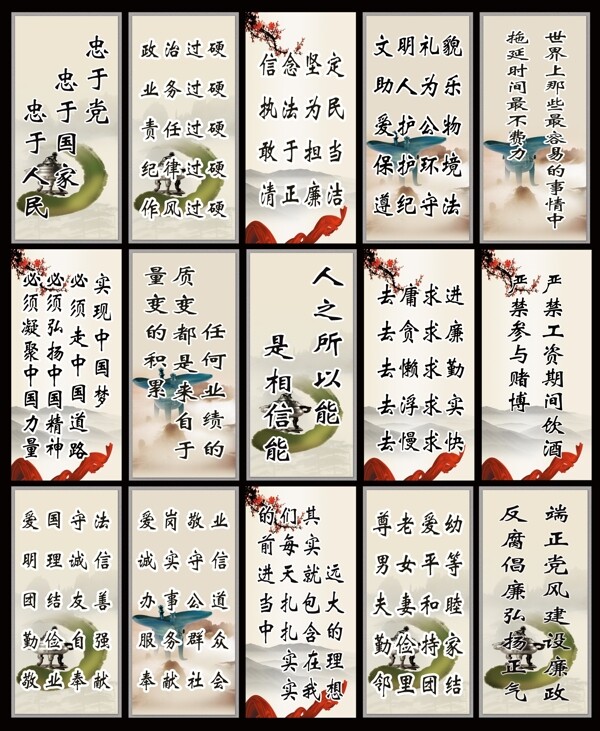 忠于党
忠于国家
忠于人民
政治过硬
业务过硬
责任过硬
纪律过硬
作风过硬
信念坚定
执法为民
敢于担当
清正廉洁
文明礼貌
助人为乐
爱护公物
保护环境
遵纪守法
世界上那些最容易的事情中
拖延时间最不费力
实现中国梦
必须走中国道路
必须弘扬中国精神
必须凝聚中国力量
任何业绩的
质变都是来自于
量变的积累
人之所以能
是相信能
去庸求进
去贪求廉
去懒求勤
去浮求实
去慢求快
严禁工资期间饮酒
严禁参与赌博
爱国守法
明理诚信
团结友善
勤俭自强
敬业奉献
爱岗敬业
诚实守信
办事公道
服务群众
奉献社会
远大的理想
其实就包含在我
们每天扎扎实实
的前进当中
尊老爱幼
男女平等
夫妻和睦
勤俭持家
邻里团结
端正党风建设廉政
反腐倡廉弘扬正气